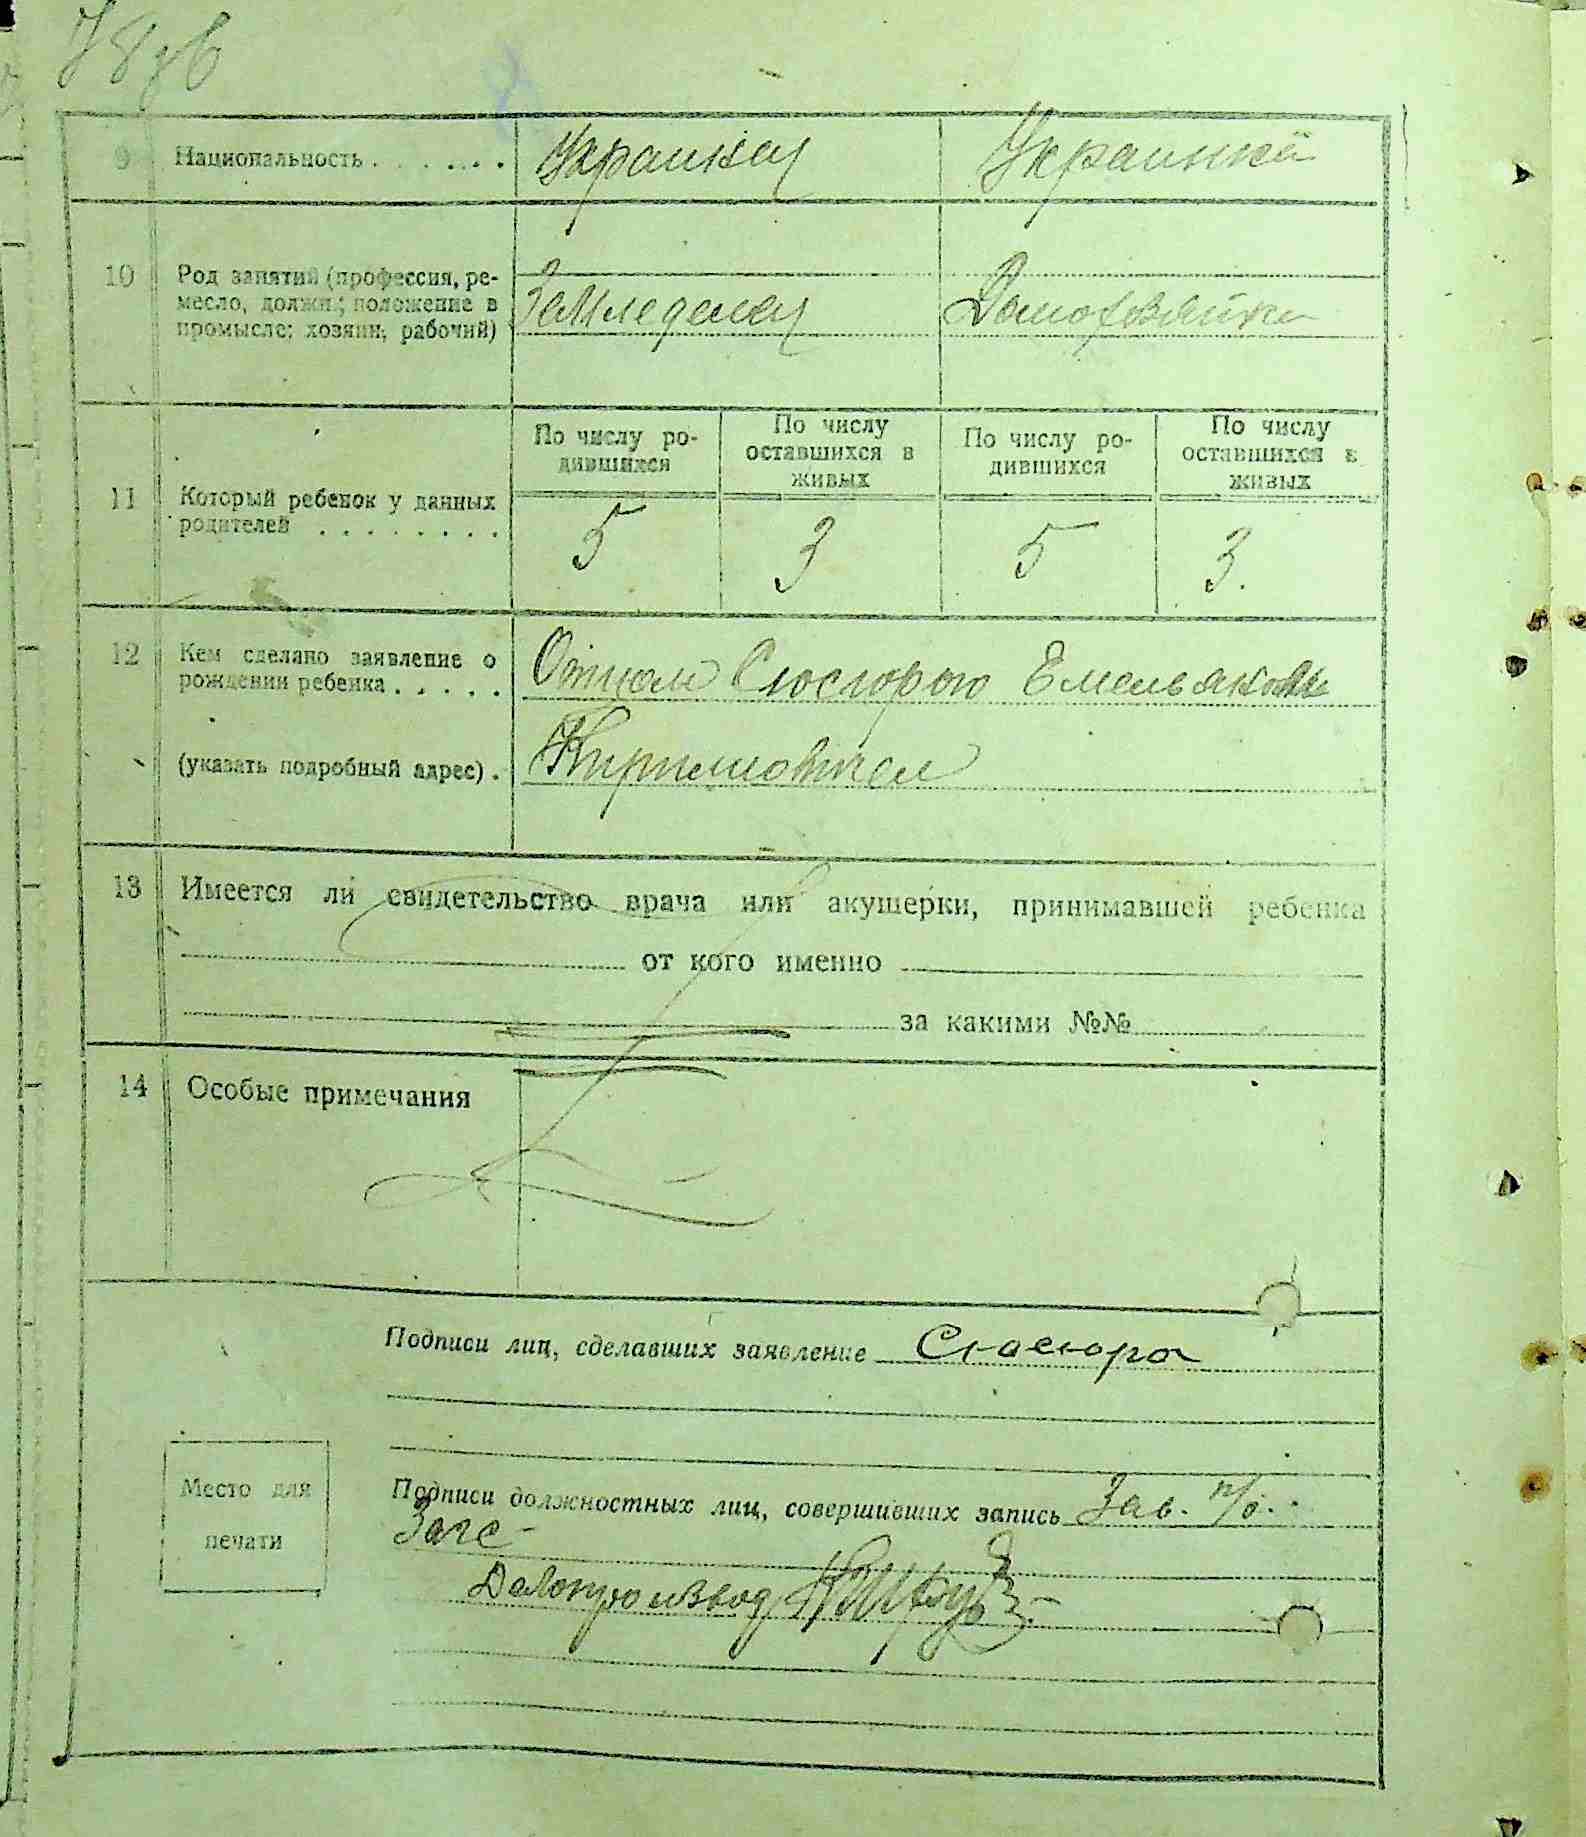 9 Национальность . . . . . . . Украинец Украинка
10 Род занятий (профессия, ре-
месло, должн.; положение в
промысле; хозяин, рабочий)
Земледелец Домохозяйка
11 Который ребенок у данных
родителей . . . . . . . .
По числу ро-
дившихся
По числу
оставшихся в
живых
По числу ро-
дившихся
По числу
оставшихся в
живых
5 3 5 3.
12 Кем сделано заявление о
рождении ребенка . . . . .
(указать подробный адрес) .
Отцом Сюсюрою Емельяном
Кириловичем
13 Имеется ли свидетельство врача или акушерки, принимавшей ребенка
от кого именно
за какими №№
14 Особые примечания
Подписи лиц, сделавших заявление Сюсюра
Место для
печати
Подписи должностных лиц, совершивших запись Зав. п/о.
Загс
Делопроизвод